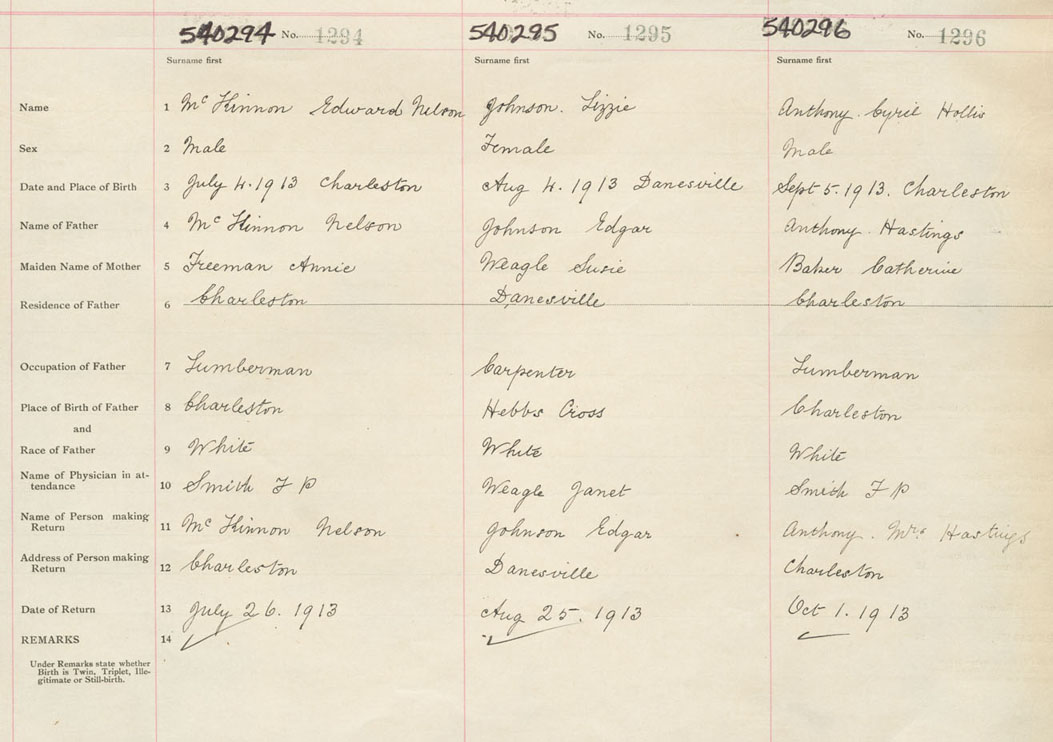 540294 No. 1294 540295 No. 1295 540296 No. 1296
Surname first Surname first Surname first
Name 1 Mc Kinnon Edward Nelson Johnson. Lizzie Anthony. Cyril Hollis
Sex 2 Male Female Male
Date and Place of Birth 3 July 4. 1913 Charleston Aug 4. 1913 Danesville Sept 5. 1913. Charleston
Name of Father 4 Mc Kinnon Nelson Johnson Edgar Anthony. Hastings
Maiden Name of Mother 5 Freeman Annie Weagle Susie Baker Catherine
Residence of Father 6 Charleston Danesville Charleston
Occupation of Father 7 Lumberman Carpenter Lumberman
Place of Birth of Father 8 Charleston Hebbs Cross Charleston
and
Race of Father 9 White White White
Name of Physician in at-
tendance 10 Smith F P Weagle Janet Smith F P
Name of Person making
Return 11 Mc Kinnon Nelson Johnson Edgar Anthony. Mrs Hastings
Address of Person making
Return 12 Charleston Danesville Charleston
Date of Return 13 July 26. 1913 Aug 25. 1913 Oct 1. 1913
REMARKS 14
Under Remarks state whether
Birth is Twin, Triplet, Ille-
gitimate or Still-birth.